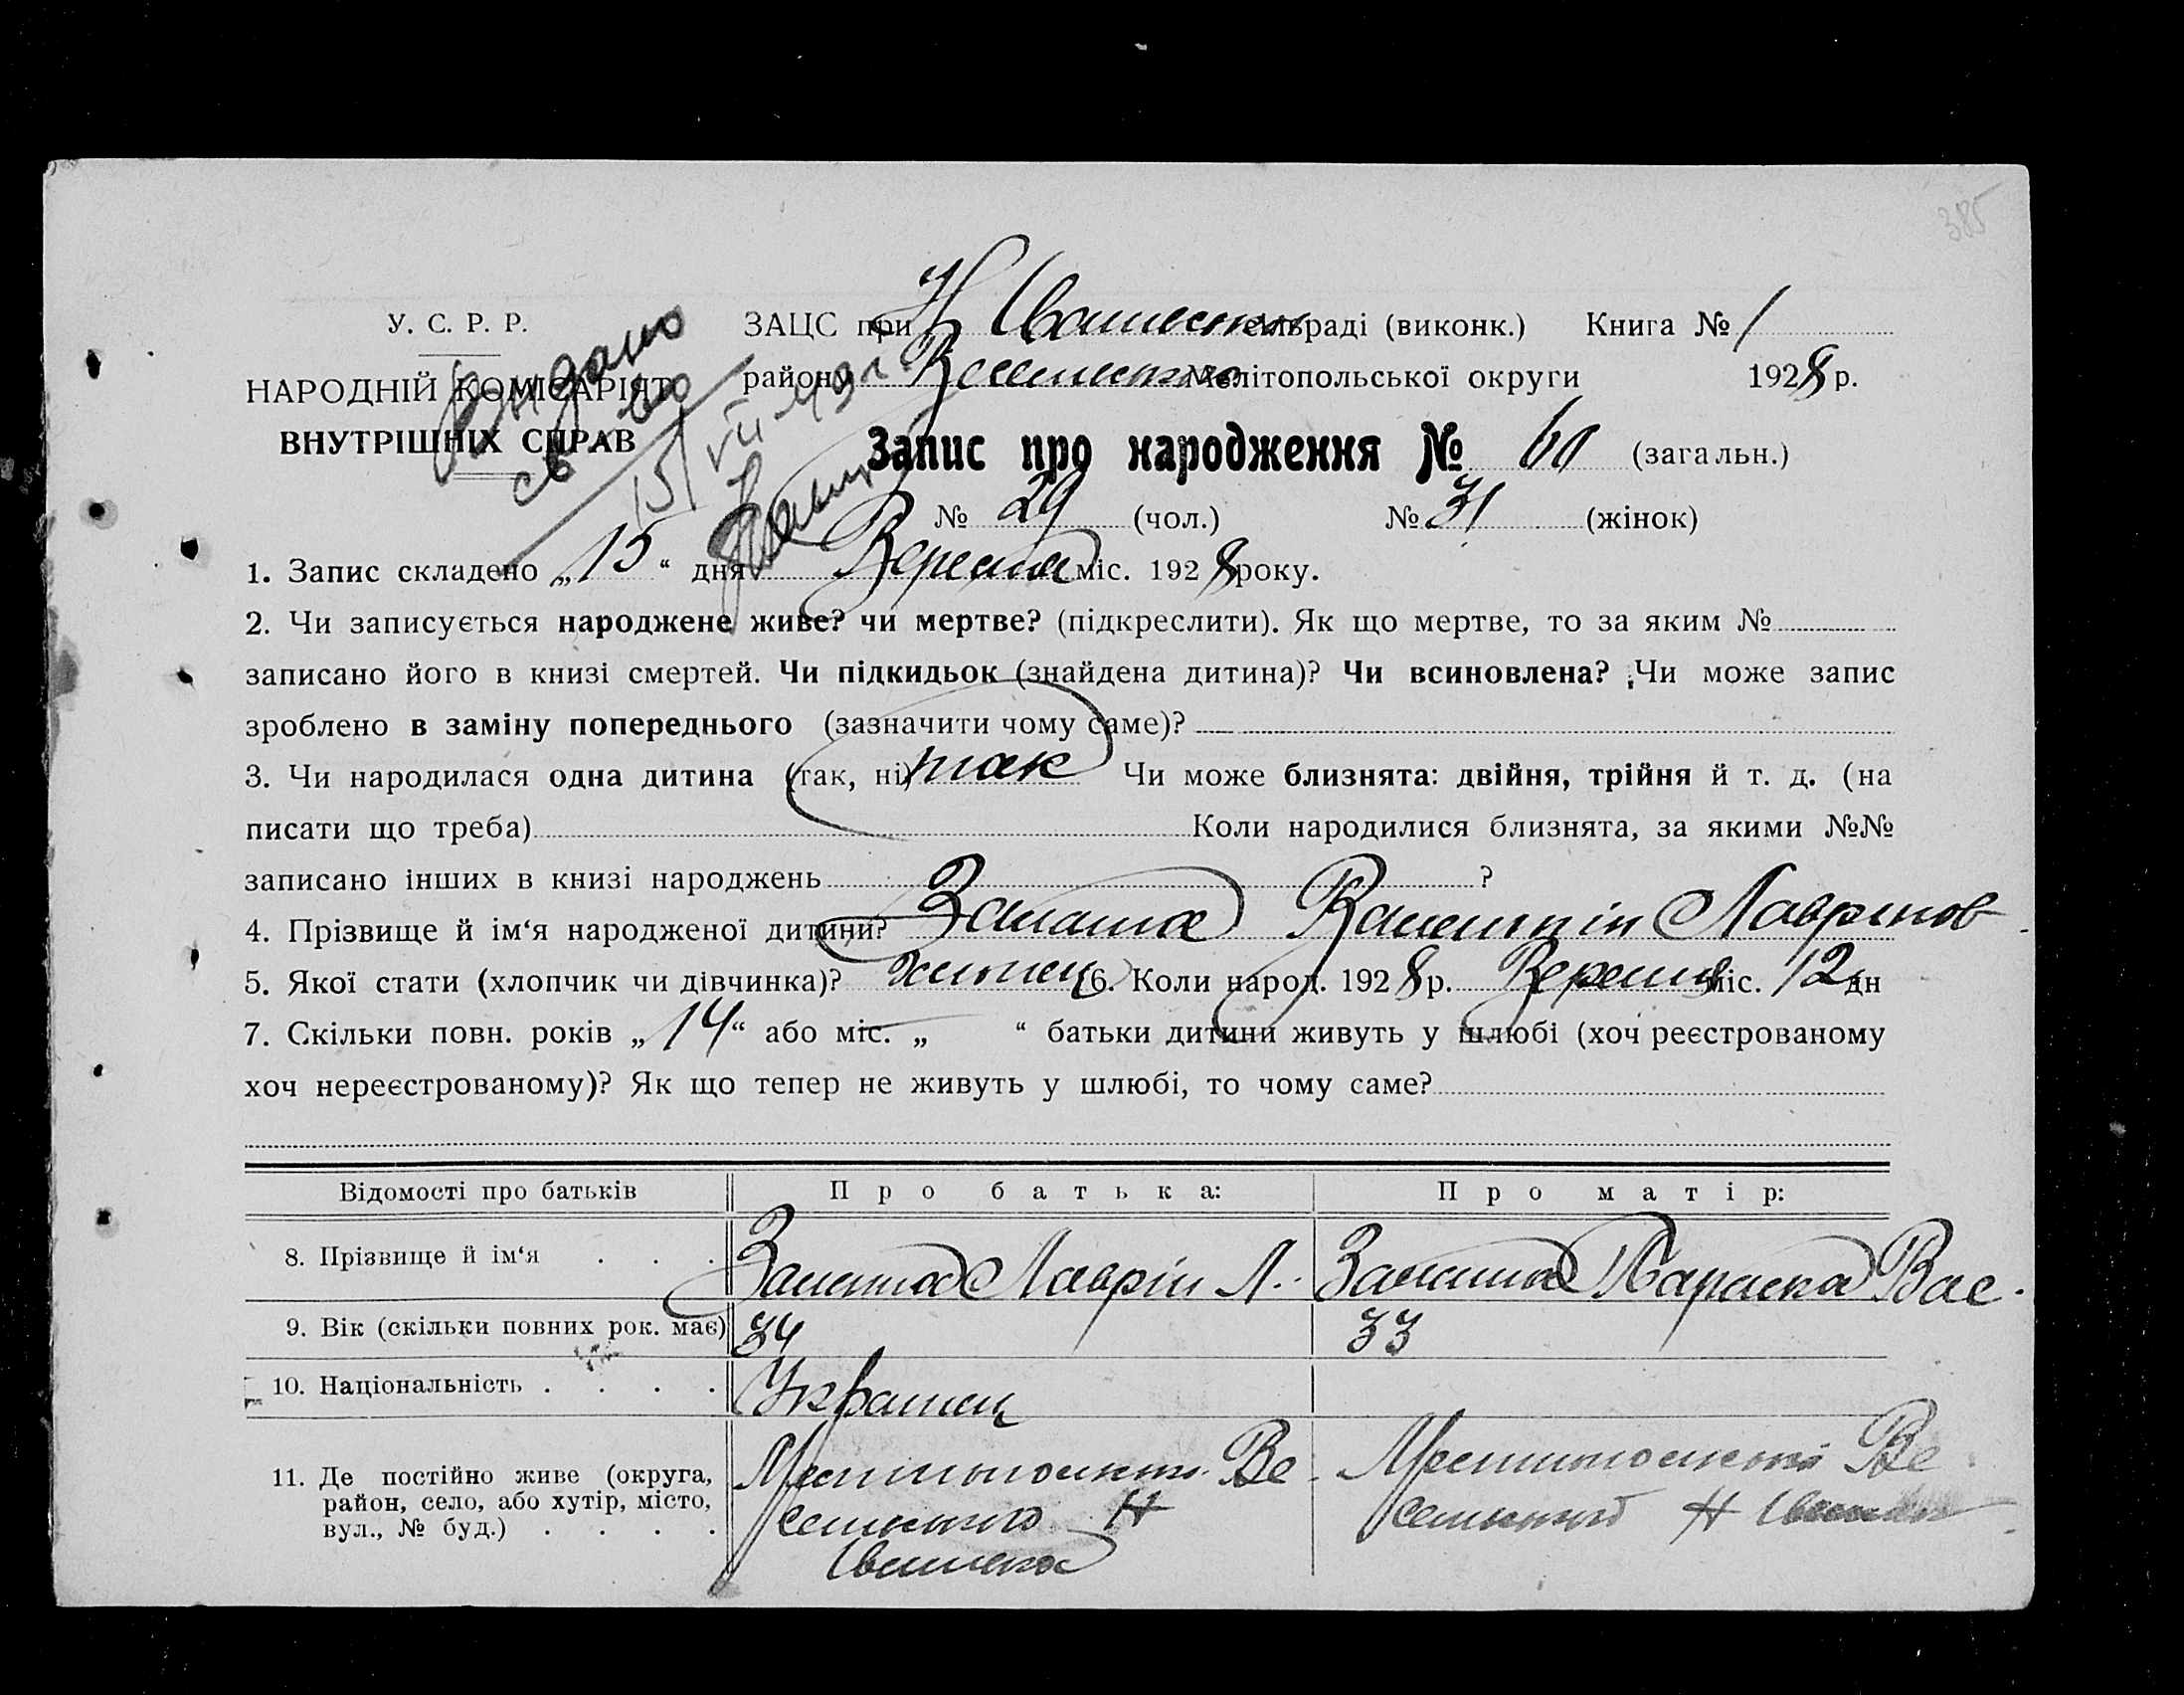 385
У. С. Р. Р.
НАРОДНІЙ КОМІСАРІЯТ
ВНУТРІШНІХ СПРАВ
Видано
св-во
15/VII-49 г.
ЗАЦС при Н сельраді (виконк.) Книга № 1
району Мелітопольської округи 1928 р.
Запис про народження № 60 (загальн.)
№ 29 (чол.) № 31 (жінок)
1. Запис складено „15“ дня Вересня міс. 1928 року.
2. Чи записується народжене живе? чи мертве? (підкреслити). Як що мертве, то за яким №
записано його в книзі смертей. Чи підкидьок (знайдена дитина)? Чи всиновлена? Чи може запис
зроблено в заміну попереднього (зазначити чому саме)? —
3. Чи народилася одна дитина (так, ні) так Чи може близнята: двійня, трійня й т. д. (на
писати що треба) Коли народилися близнята, за якими №№
записано інших в книзі народжень ?
4. Прізвище й ім‘я народженої дитини? Валентін Лавринов
5. Якої стати (хлопчик чи дівчинка)? хлопец 6. Коли народ. 1928 р. Вересня міс. 12 дн
7. Скільки повн. років „14“ або міс. „ “ батьки дитини живуть у шлюбі (хоч реєстрованому
хоч нереєстрованому)? Як що тепер не живуть у шлюбі, то чому саме?
Відомості про батьків Про батька: Про матір:
8. Прізвище й ім‘я . . . Лаврін Л. Параска Вас.
9. Вік (скільки повних рок. має) 34 33
10. Національність . . . . Українец
11. Де постійно живе (округа, Ве Ве
район, село, або хутір, місто, Н Н
вул., № буд.) . . . .